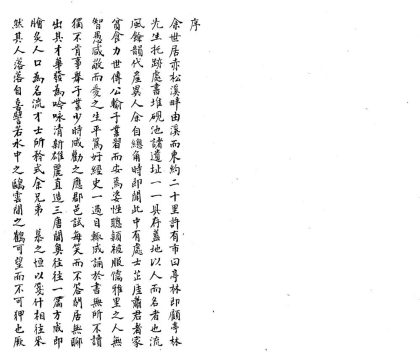 序
余世居赤松溪畔由溪而東約二十里許有市曰亭林即顧亭林
先生托跡處書堆硯池諸遺址一一具存蓋地以人而名者也流
風餘韻代產異人余自總角時即聞此中有處士芷庭蕭君者家
貧食力世傳公輸子業習而安焉姿性聰穎被服儒雅里之人無
智愚咸敬而愛之生平篤好經史一過目輒成誦於書無所不讀
獨不肯事舉子業少時咸勸之應郡邑試每笑而不答閒居無聊
出其才華發為吟咏清新雄麗直造三唐閫奧往往一篇方成即
膾炙人口為名流才士所矜式余兄弟 慕之恒以箋什相往來
然其人落落自喜譬若水中之鷗雲間之鶴可望而不可狎也厥